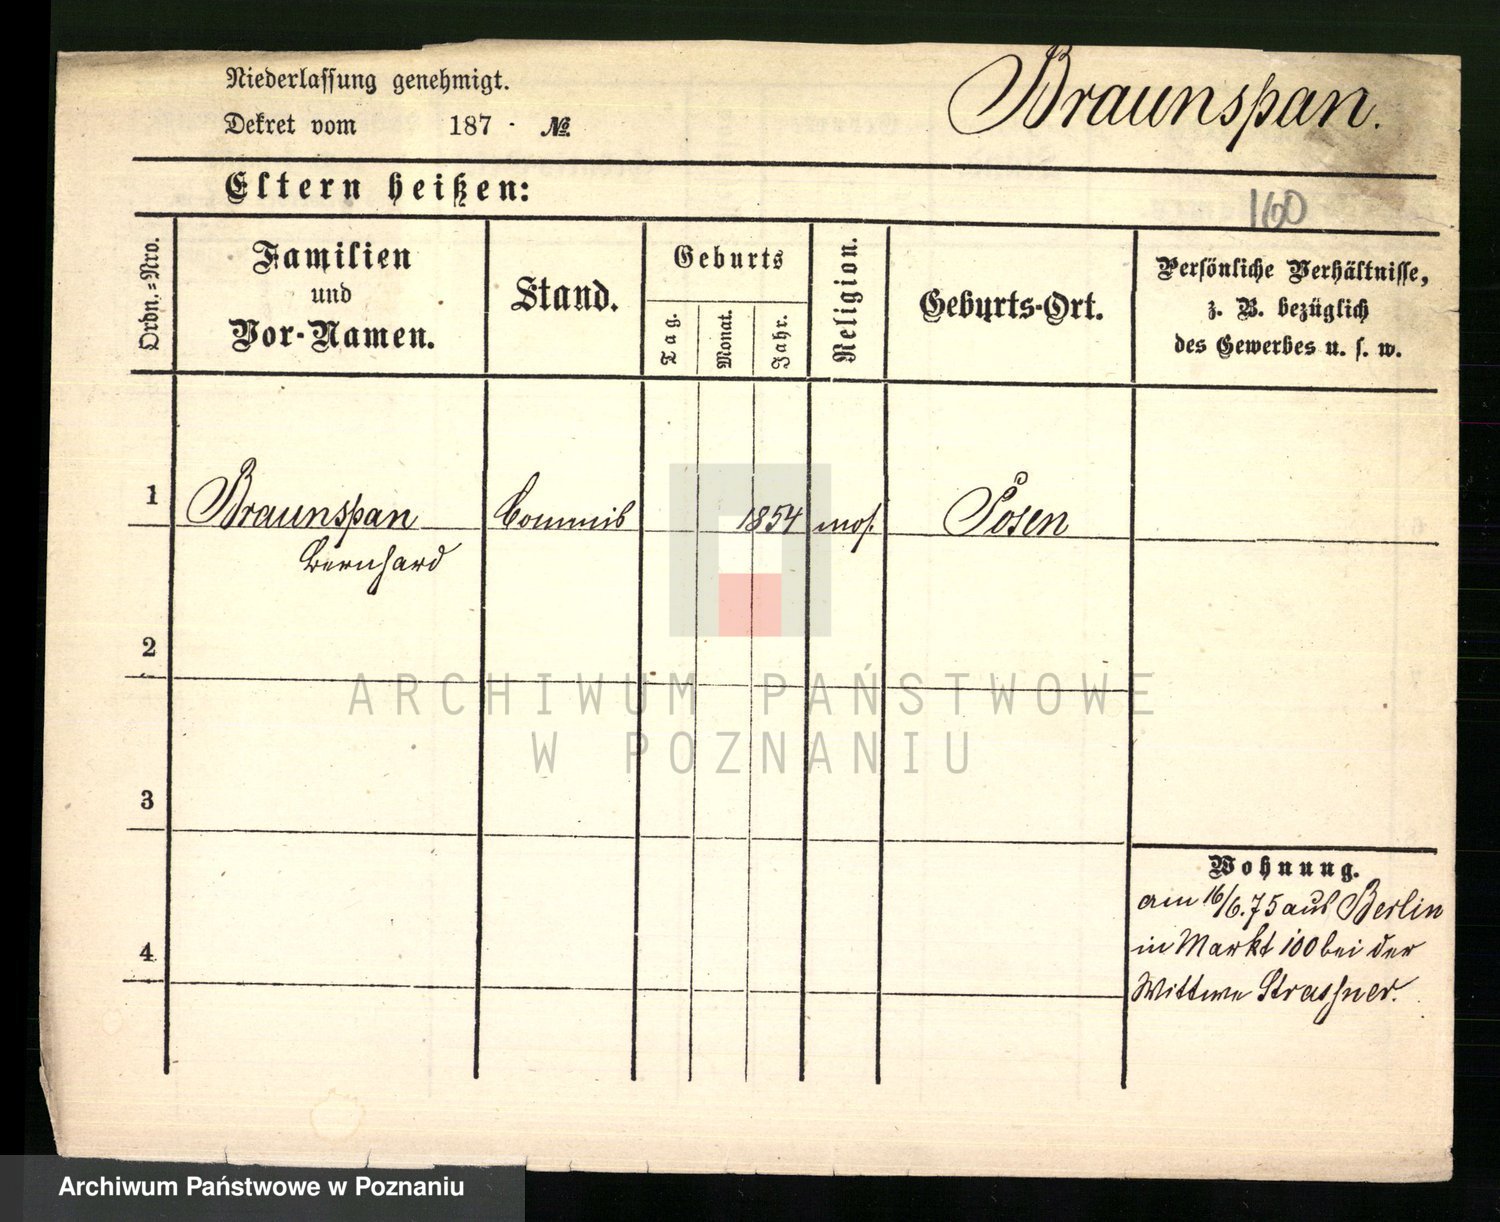 Niederlassung genehmigt.
Braunspan.
Dekret vom 187 . №
Eltern heißen:
160
Ordn.=Nro.
Familien
und
Vor-Namen.
Stand.
Geburts
Tag.
Monat.
Jahr.
Religion.
Geburts-Ort.
Persönliche Verhältnisse,
z. B. bezüglich
des Gewerbes u. s. w.
1 Braunspan Commis 1854 mos. Posen
Bernhard
2
ARCHIWUM PAŃSTWOWE
W POZNANIU
3
4
Wohnung.
am 16/6.75 aus Berlin
in Markt 100 bei der
Wittwe
Archiwum Państwowe w Poznaniu